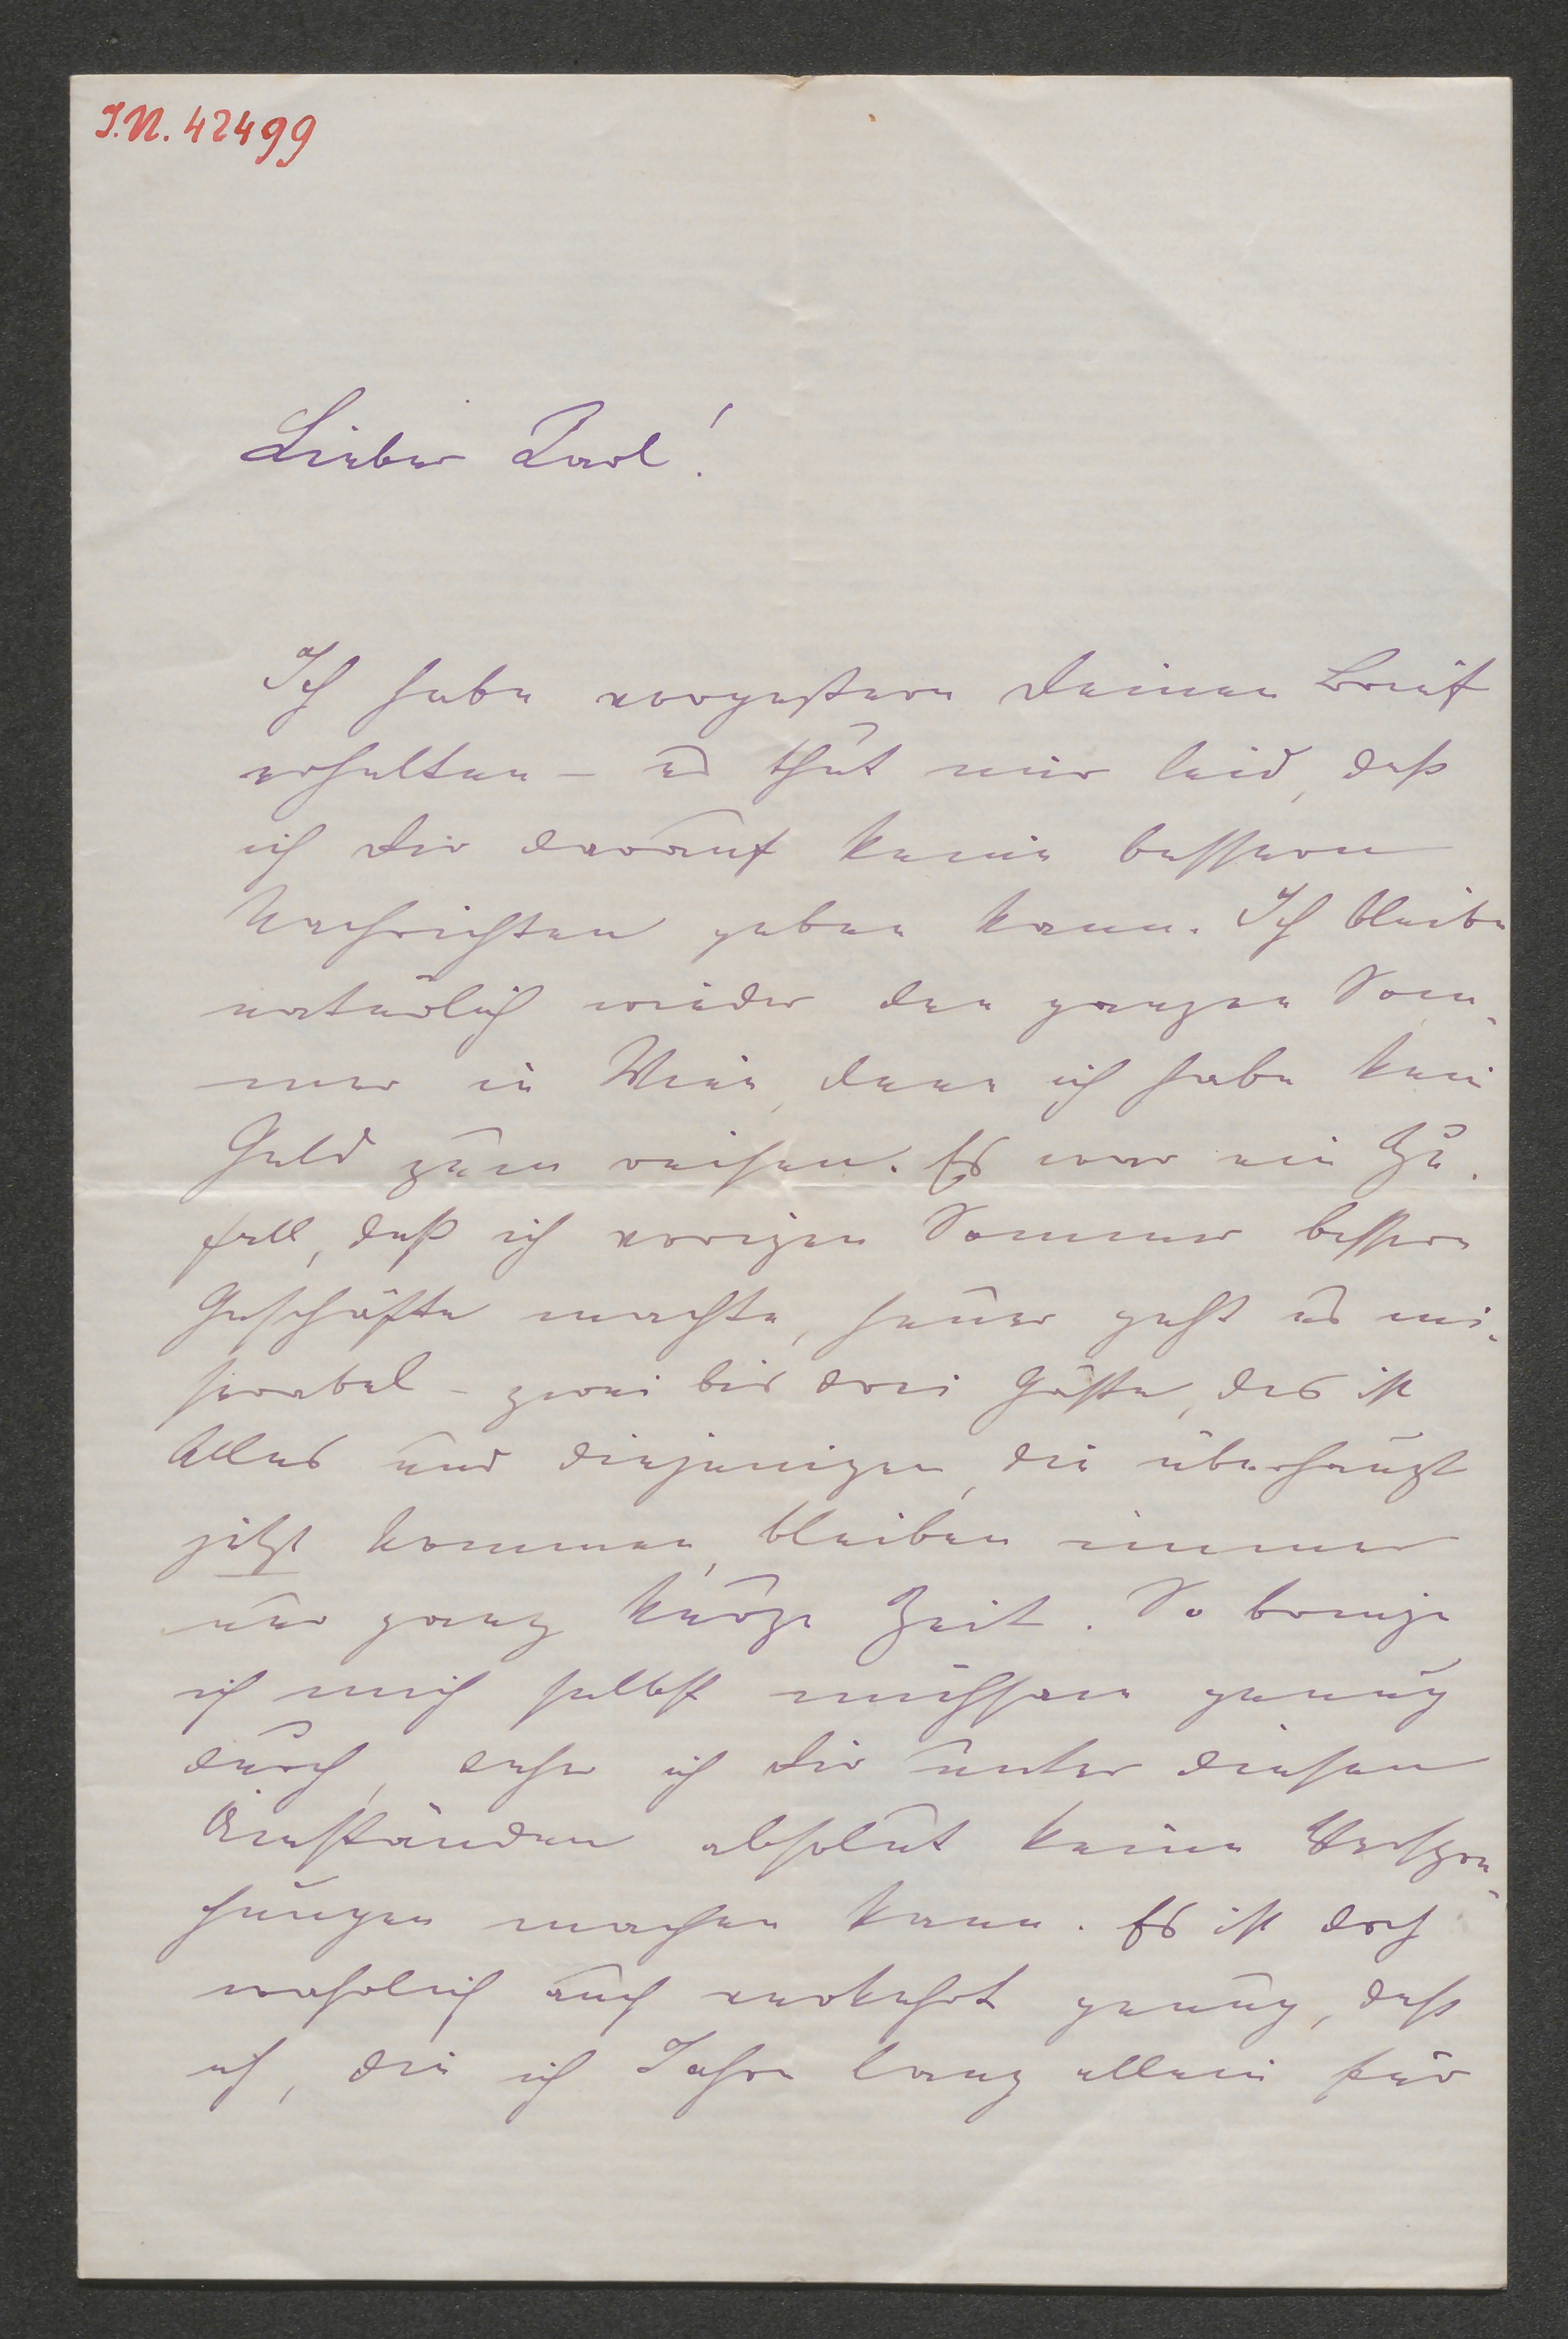 I.N. 42499
Lieber Karl!
Ich habe vorgestern Deinen Brief
erhalten – es thut mir leid, daß
ich Dir darauf keine bessern
Nachrichten geben kann. Ich bleibe
natürlich wieder den ganzen Som-
mer in Wien, denn ich habe kein
Geld zum reisen. Es war ein Zu-
fall, daß ich vorigen Sommer bessere
Geschäfte machte, heuer geht es mi-
serabel – zwei bis drei Gäste, das ist
Alles und diejenigen, die überhaupt
jetzt kommen, bleiben immer
nur ganz kurze Zeit. So bringe
ich mich selbst mühsam genug
durch, daher ich Dir unter diesen
Umständen absolut keine Verspre-
chungen machen kann. Es ist doch
wahrlich auch verkehrt genug, daß
ich, die ich Jahre lang allein für